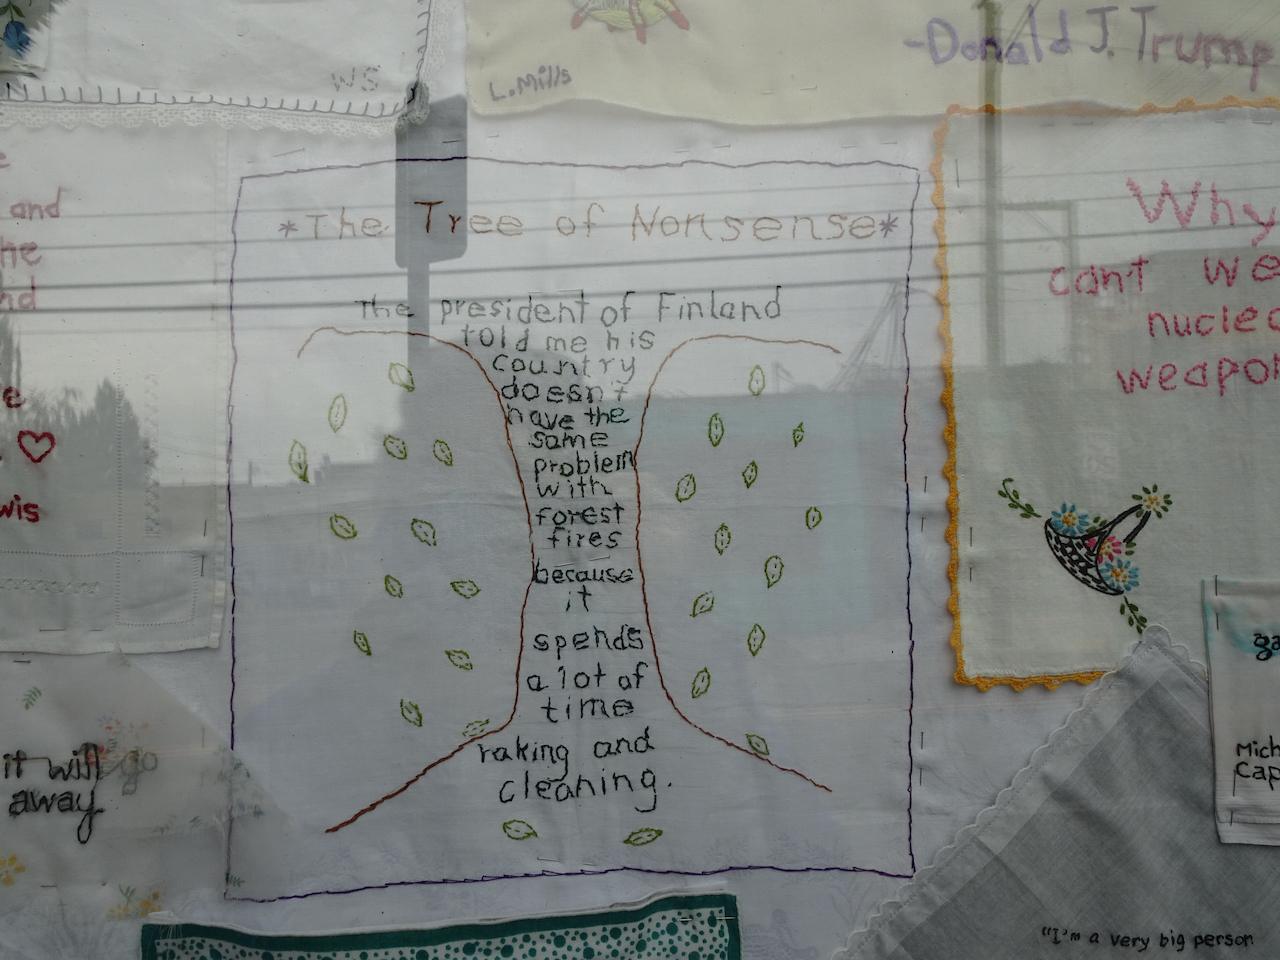 WS
L.Mills
-Donald J. Trump
and
he
*The Tree of Nonsense*
The president of Finland
told me his
country
doesn't
have the
same
problem
with
forest
fires
because
it
spends
a lot of
time
raking and
cleaning.
Why
can't we
it will go
away
Mich
Cap
"I'm a very big person